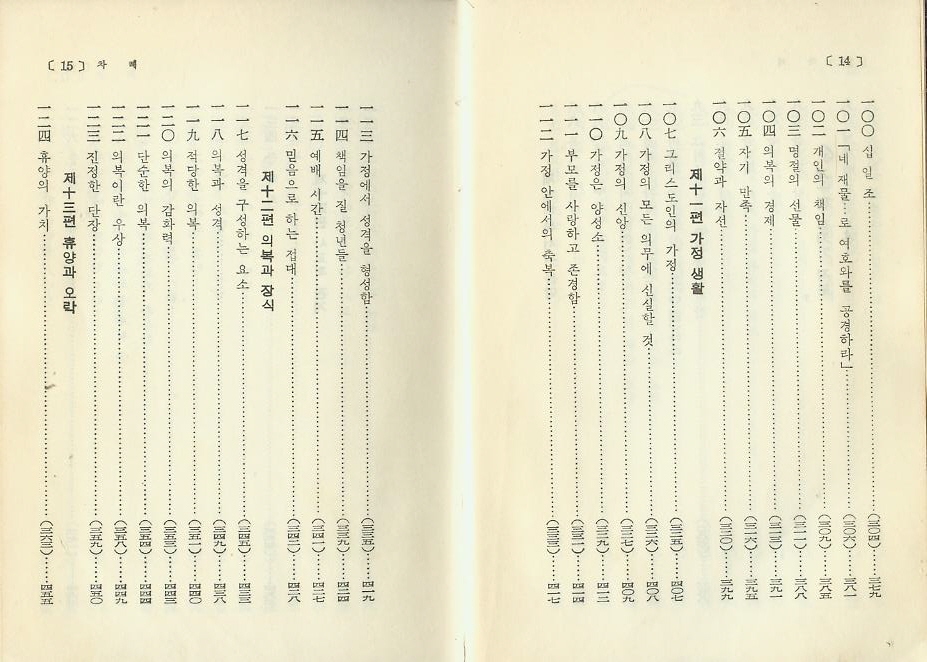 〔 14 〕
一〇〇 십 일 조……(三〇四)……三七九
一〇一 「네 재물…로 여호와를 공경하라」……(三〇六)……三八一
一〇二 개인의 책임……(三〇九)……三八五
一〇三 명절의 선물……(三一一)……三八八
一〇四 의복의 경제……(三一三)……三九一
一〇五 자기 만족……(三一六)……三九五
一〇六 절약과 자선……(三二〇)……三九九
제十一편 가정 생활
一〇七 그리스도인의 가정……(三二五)……四〇七
一〇八 가정의 모든 의무에 신실할 것……(三二六)……四〇八
一〇九 가정의 신앙……(三二七)……四〇九
一一〇 가정은 양성소……(三二九)……四一二
一一一 부모를 사랑하고 존경함……(三三一)……四一四
一一二 가정 안에서의 축복……(三三三)……四一七
〔 15 〕 차 례
一一三 가정에서 성격을 형성함……(三三五)……四一九
一一四 책임을 질 청년들……(三三九)……四二四
一一五 예배 시간……(三四一)……四二七
一一六 믿음으로 하는 접대……(三四二)……四二八
제十二편 의복과 장식
一一七 성격을 구성하는 요소……(三四五)……四三三
一一八 의복과 성격……(三四九)……四三八
一一九 적당한 의복……(三五一)……四四〇
一二〇 의복의 감화력……(三五三)……四四三
一二一 단순한 의복……(三五四)……四四四
一二二 의복이란 우상……(三五八)……四四九
一二三 진정한 단장……(三五九)……四五〇
제十三편 휴양과 오락
一二四 휴양의 가치……(三六三)……四五五